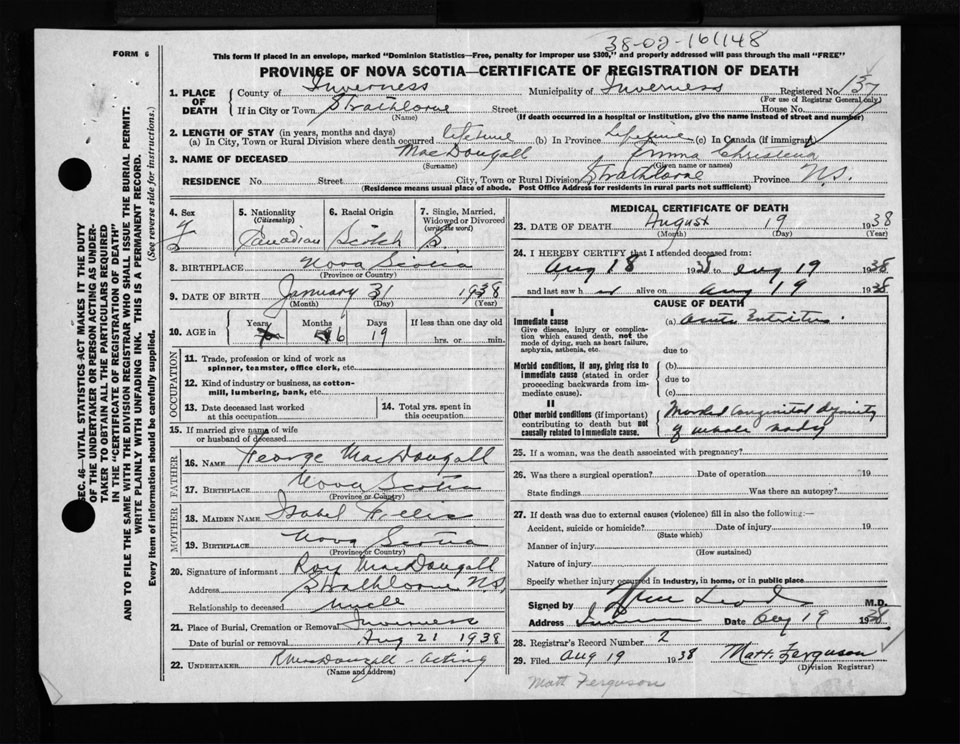 38-02-161148
FORM 6
This form if placed in an envelope, marked "Dominion Statistics—Free, penalty for improper use $300," and properly addressed will pass through the mail "FREE"
PROVINCE OF NOVA SCOTIA—CERTIFICATE OF REGISTRATION OF DEATH
1. PLACE OF DEATH County of Inverness Municipality of Inverness Registered No. 157
(For use of Registrar General only)
If in City or Town Strathlorne Street House No.
(Name) (If death occurred in a hospital or institution, give the name instead of street and number)
2. LENGTH OF STAY (in years, months and days)
(a) In City, Town or Rural Division where death occurred lifetime (b) In Province Lifetime (c) In Canada (if immigrant)
3. NAME OF DECEASED MacDougall Emma Christena
(Surname) (Given name or names)
RESIDENCE No. Street City, Town or Rural Division Strathlorne Province N.S.
(Residence means usual place of abode. Post Office Address for residents in rural parts not sufficient)
4. Sex F
5. Nationality (Citizenship) Canadian
6. Racial Origin Scotch
7. Single, Married, Widowed or Divorced (write the word) S.
8. BIRTHPLACE Nova Scotia
(Province or Country)
9. DATE OF BIRTH January 31 1938
(Month) (Day) (Year)
10. AGE in Years Months 6 Days 19 If less than one day old
hrs. or min.
OCCUPATION
11. Trade, profession or kind of work as spinner, teamster, office clerk, etc.
12. Kind of industry or business, as cotton-mill, lumbering, bank, etc.
13. Date deceased last worked at this occupation
14. Total yrs. spent in this occupation
15. If married give name of wife or husband of deceased
FATHER
16. NAME George MacDougall
17. BIRTHPLACE Nova Scotia
(Province or Country)
MOTHER
18. MAIDEN NAME Isabel
19. BIRTHPLACE Nova Scotia
(Province or Country)
20. Signature of informant Roy MacDougall
Address Strathlorne N.S.
Relationship to deceased Uncle
21. Place of Burial, Cremation or Removal Inverness
Date of burial or removal Aug 21 1938
22. UNDERTAKER R MacDougall - acting
(Name and address)
MEDICAL CERTIFICATE OF DEATH
23. DATE OF DEATH August 19 1938
(Month) (Day) (Year)
24. I HEREBY CERTIFY that I attended deceased from:
Aug 18 1938 to Aug 19 1938
and last saw h alive on Aug 19 1938
CAUSE OF DEATH
I
Immediate cause
Give disease, injury or complication which caused death, not the mode of dying, such as heart failure, asphyxia, asthenia, etc.
(a) Acute Enteritis.
due to
Morbid conditions, if any, giving rise to immediate cause (stated in order proceeding backwards from immediate cause).
(b)
due to
(c)
II
Other morbid conditions (if important) contributing to death but not causally related to immediate cause.
Marked Congenital
of whole body
25. If a woman, was the death associated with pregnancy?
26. Was there a surgical operation? Date of operation 19
State findings Was there an autopsy?
27. If death was due to external causes (violence) fill in also the following:—
Accident, suicide or homicide? Date of injury 19
(State which)
Manner of injury
(How sustained)
Nature of injury
Specify whether injury occurred in industry, in home, or in public place
Signed by M.D.
Address Date Aug 19 1938
28. Registrar's Record Number 2
29. Filed Aug 19 1938 Matt. Ferguson
(Division Registrar)
Matt Ferguson
SEC. 46—VITAL STATISTICS ACT MAKES IT THE DUTY
OF THE UNDERTAKER OR PERSON ACTING AS UNDER-
TAKER TO OBTAIN ALL THE PARTICULARS REQUIRED
IN THE "CERTIFICATE OF REGISTRATION OF DEATH"
AND TO FILE THE SAME WITH THE DIVISION REGISTRAR WHO SHALL ISSUE THE BURIAL PERMIT.
WRITE PLAINLY WITH UNFADING INK. THIS IS A PERMANENT RECORD.
Every item of information should be carefully supplied. (See reverse side for instructions.)